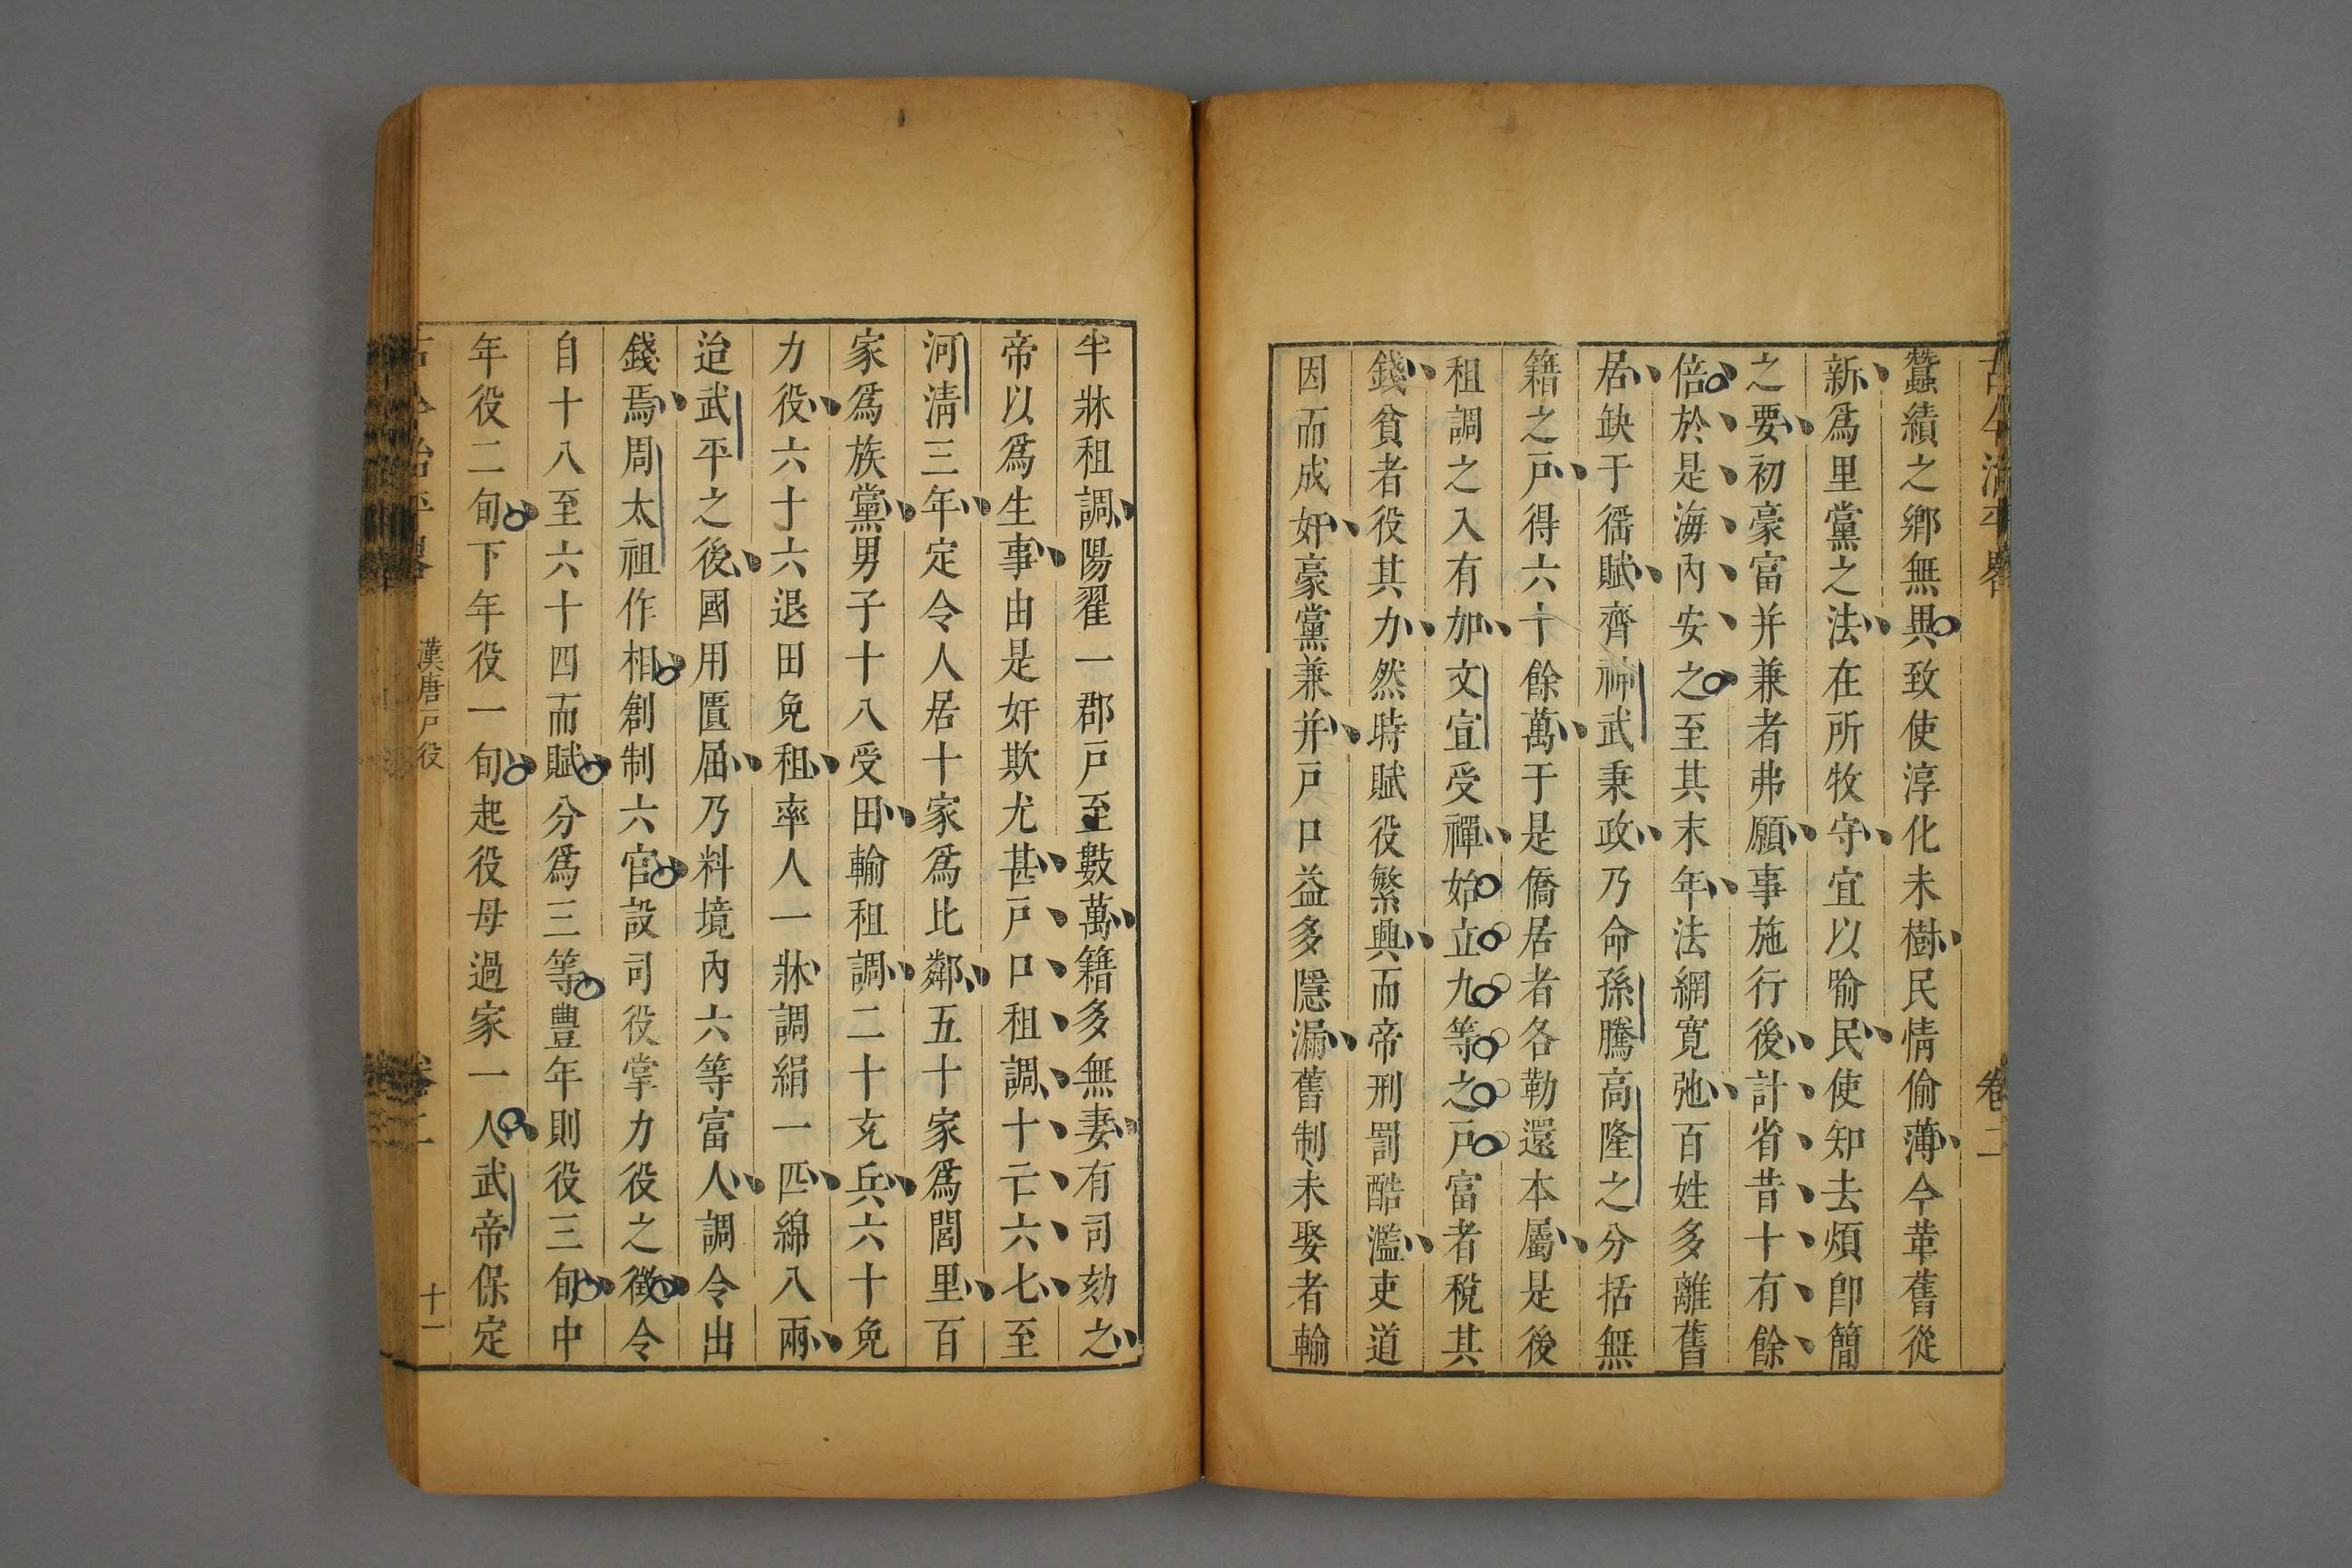 古今治平畧 卷二
蠶績之鄉無異致使淳化未樹民情偷薄今革舊從
新爲里黨之法在所牧守宜以喻民使知去煩卽簡
之要初豪富并兼者弗願事施行後計省昔十有餘
倍於是海內安之至其末年法網寛弛百姓多離舊
居缺于徭賦齊神武秉政乃命孫騰高隆之分括無
籍之戸得六十餘萬于是僑居者各勒還本屬是後
租調之入有加文宣受禪始立九等之戸富者稅其
錢貧者役其力然時賦役繁興而帝刑罰酷濫吏道
因而成奸豪黨兼并戸口益多隱漏舊制未娶者輸
半牀租調陽翟一郡戸至數萬籍多無妻有司劾之
帝以爲生事由是奸欺尤甚戸口租調十亡六七至
河清三年定令人居十家爲比鄰五十家爲閭里百
家爲族黨男子十八受田輸租調二十充兵六十免
力役六十六退田免租率人一牀調絹一匹綿八兩
迨武平之後國用匱屈乃料境內六等富人調令出
錢焉周太祖作相創制六官設司役掌力役之徵令
自十八至六十四而賦分爲三等豐年則役三旬中
年役二旬下年役一旬起役毋過家一人武帝保定
古今治平畧 漢唐戸役 卷二 十一